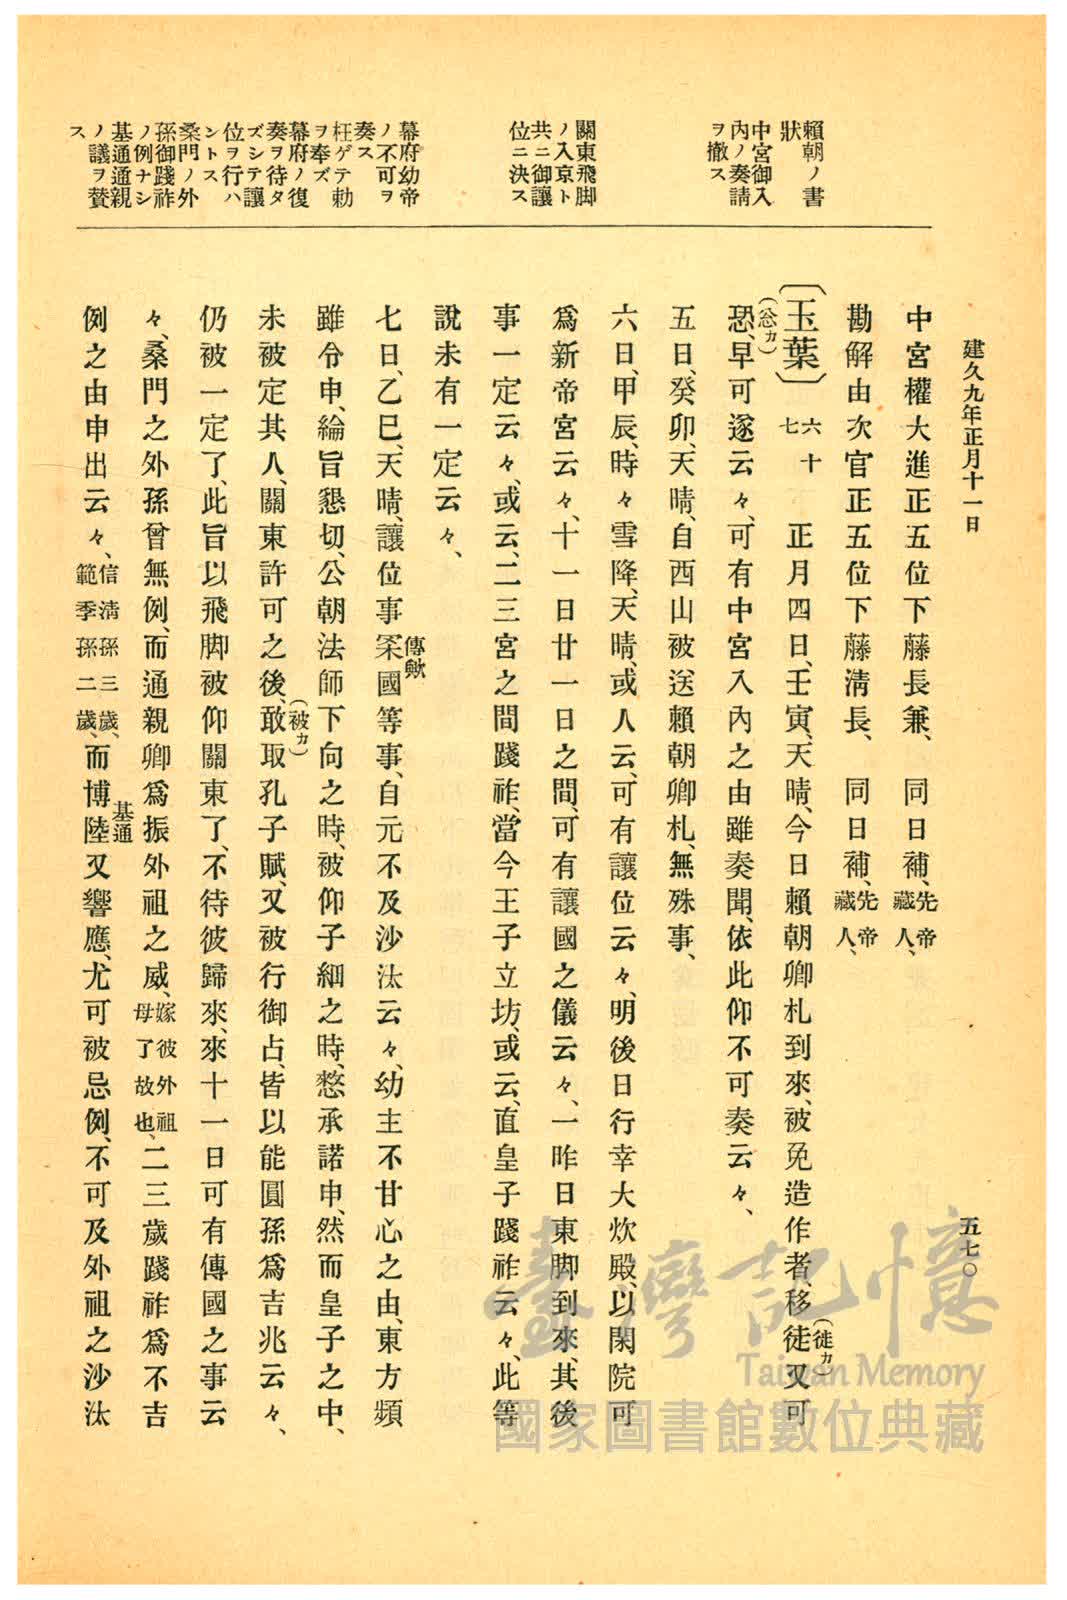 建久九年正月十一日
五七〇
賴朝ノ書
狀
中宮御入
內ノ奏請
ヲ撤ス
關東飛脚
ノ入京ト
共ニ御讓
位ニ決ス
幕府幼帝
ノ不可ヲ
奏ス
枉ゲテ勅
ヲ奉ズ
幕府ノ復
奏ヲ待タ
ズシテ讓
位ヲ行ハ
ントス
桑門ノ外
孫御踐祚
ノ例ナシ
基通通親
ノ議ヲ贊
ス
中宮權大進正五位下藤長兼、同日補、先帝藏人、
勘解由次官正五位下藤淸長、同日補、先帝藏人、
〔玉葉〕六十七 正月四日、壬寅、天晴、今日賴朝卿札到來、被免造作者、移徒(徙カ)又可
恐(忩カ)、早可遂云々、可有中宮入內之由雖奏聞、依此仰不可奏云々、
五日、癸卯、天晴、自西山被送賴朝卿札、無殊事、
六日、甲辰、時々雪降、天晴、或人云、可有讓位云々、明後日行幸大炊殿、以閑院可
爲新帝宮云々、十一日廿一日之間、可有讓國之儀云々、一昨日東脚到來、其後
事一定云々、或云、二三宮之間踐祚、當今王子立坊、或云、直皇子踐祚云々、此等
說未有一定云々、
七日、乙巳、天晴、讓位事罙(傳歟)國等事、自元不及沙汰云々、幼主不甘心之由、東方頻
雖令申、綸旨懇切、公朝法師下向之時、被仰子細之時、憗承諾申、然而皇子之中、
未被定其人、關東許可之後、敢(被カ)取孔子賦、又被行御占、皆以能圓孫爲吉兆云々、
仍被一定了、此旨以飛脚被仰關東了、不待彼歸來、來十一日可有傳國之事云
々、桑門之外孫曾無例、而通親卿爲振外祖之威、嫁彼外祖母了故也、二三歲踐祚爲不吉
例之由申出云々、信淸孫三歲、範季孫二歲、而博陸(基通)又響應、尤可被忌例、不可及外祖之沙汰
臺灣記憶
Taiwan Memory
國家圖書館數位典藏